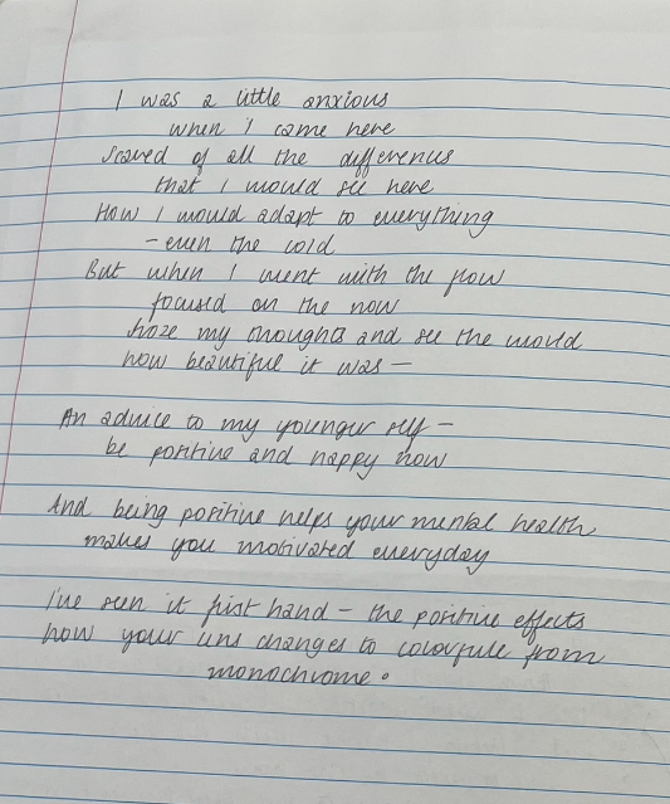 I was a little anxious
when I came here
scared of all the differences
that I would see here
How I would adapt to everything
- even the cold
But when I went with the flow
focused on the now
my thoughts and see the world
how beautiful it was -
An advice to my younger self -
be positive and happy now
And being positive helps your mental health
makes you motivated everyday
I've seen it first hand - the positive effects
how your lens changes to colorfull from
monochrome.